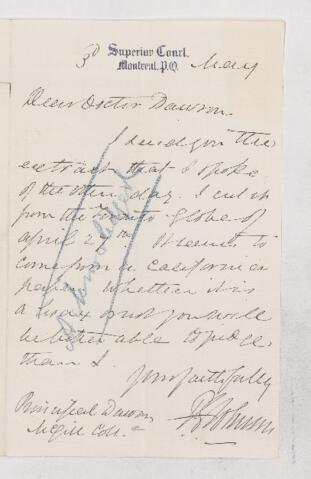 Superior Court,
Montreal, P.Q.
3d May
Dear Doctor Dawson
I send you the
extract that I spoke
of the other day. I cut it
from the Toronto Globe of
April 27th. It seems to
come from a California
paper. Whether it is
a hoax or not you will
be better able to judge
than I.
Yours faithfully
Principal Dawson,
McGill Coll.